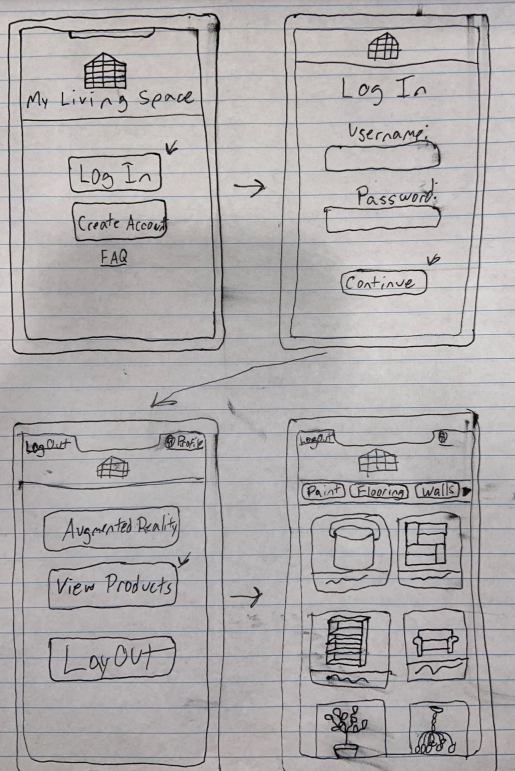 My Living Space
Log In
Create Account
FAQ
Log In
Username:
Password:
Continue
LogOut
Profile
Augmented Reality
View Products
LayOut
LogOut
Paint
Flooring
Walls